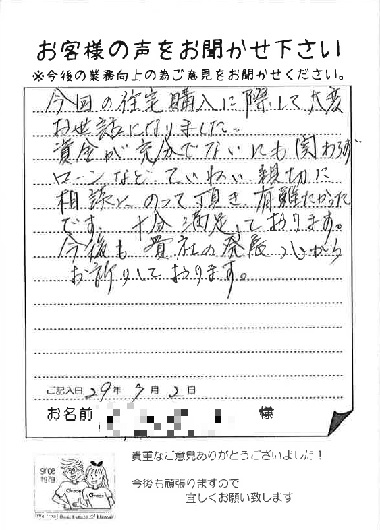 お客様の声をお聞かせ下さい
※今後の業務向上の為ご意見をお聞かせください。
今回の住宅購入に際して大変
お世話になりました。
資金が充分でないにも関わらず
ローンなど、ていねい親切に
相談にのって頂き有難たかった
です。十分満足しております。
今後も貴社の発展 心から
お祈りしております。
ご記入日 29年 7月 2日
お名前 様
since
1979
貴重なご意見ありがとうございました！
今後も頑張りますので
宜しくお願い致します